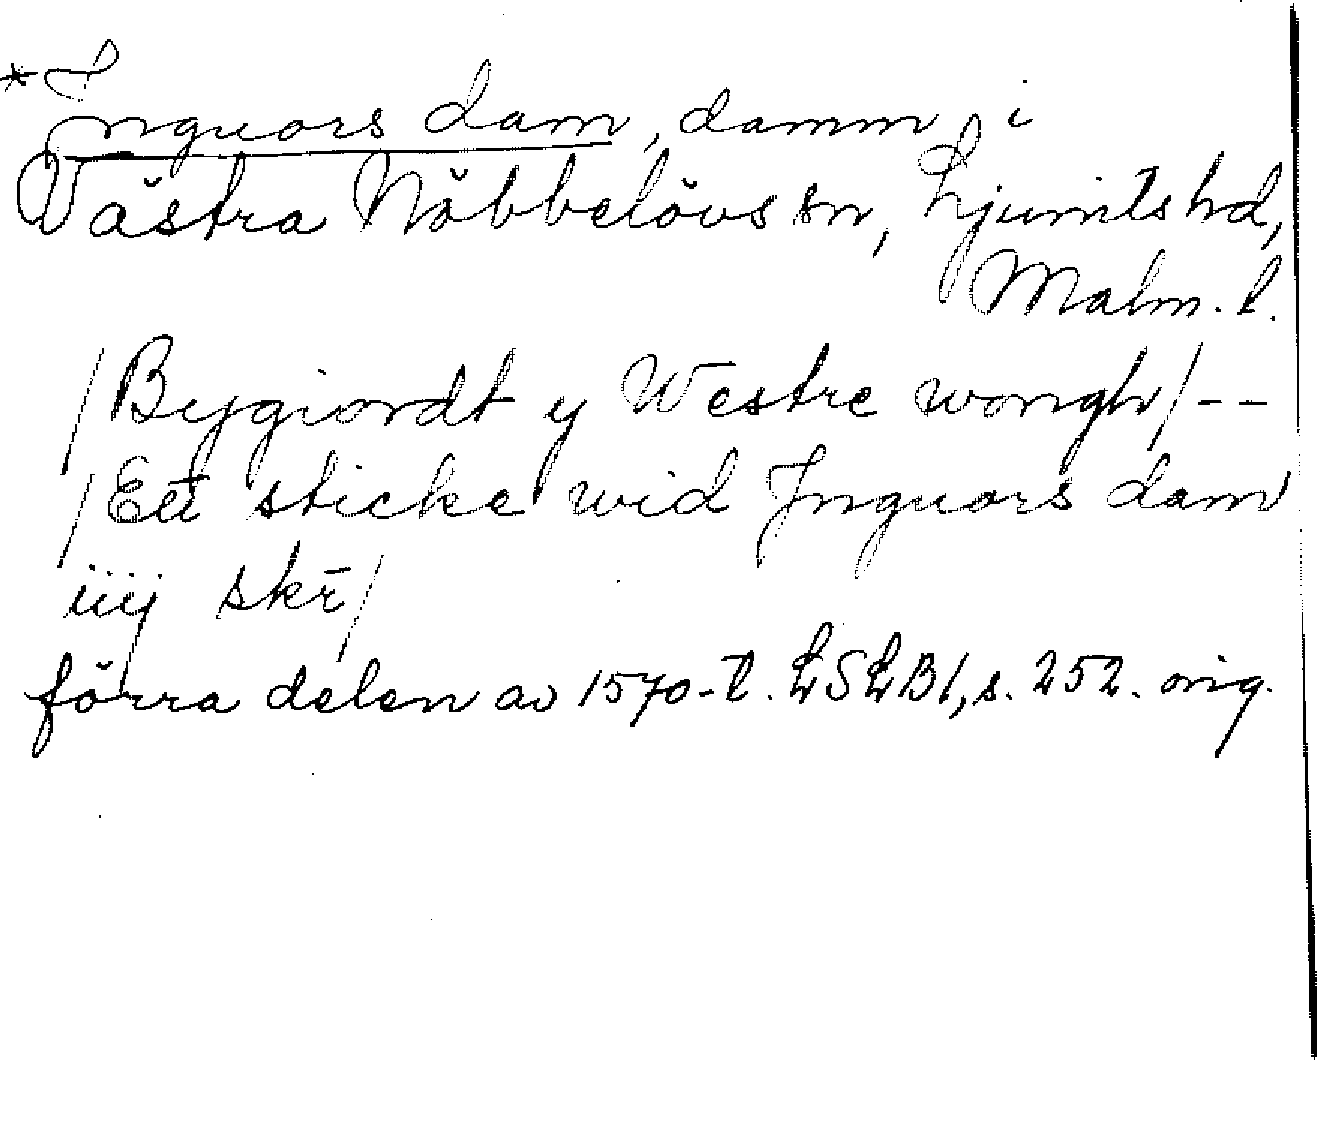 *Inguors dam, damm i
Västra Nöbbelövs sn, Ljunits hd,
Malm. l.
/Bygiordt y Westre wongh/--
/Ett sticke wid Jnguors dam
iiij skr̄/
förra delen av 1570-t. LSLB1, s. 252. orig.